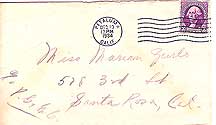 PETALUMA
DEC 12
12 PM
1934
CALIF.
Miss Marian
576 3rd St.
Santa Rosa, Cal.